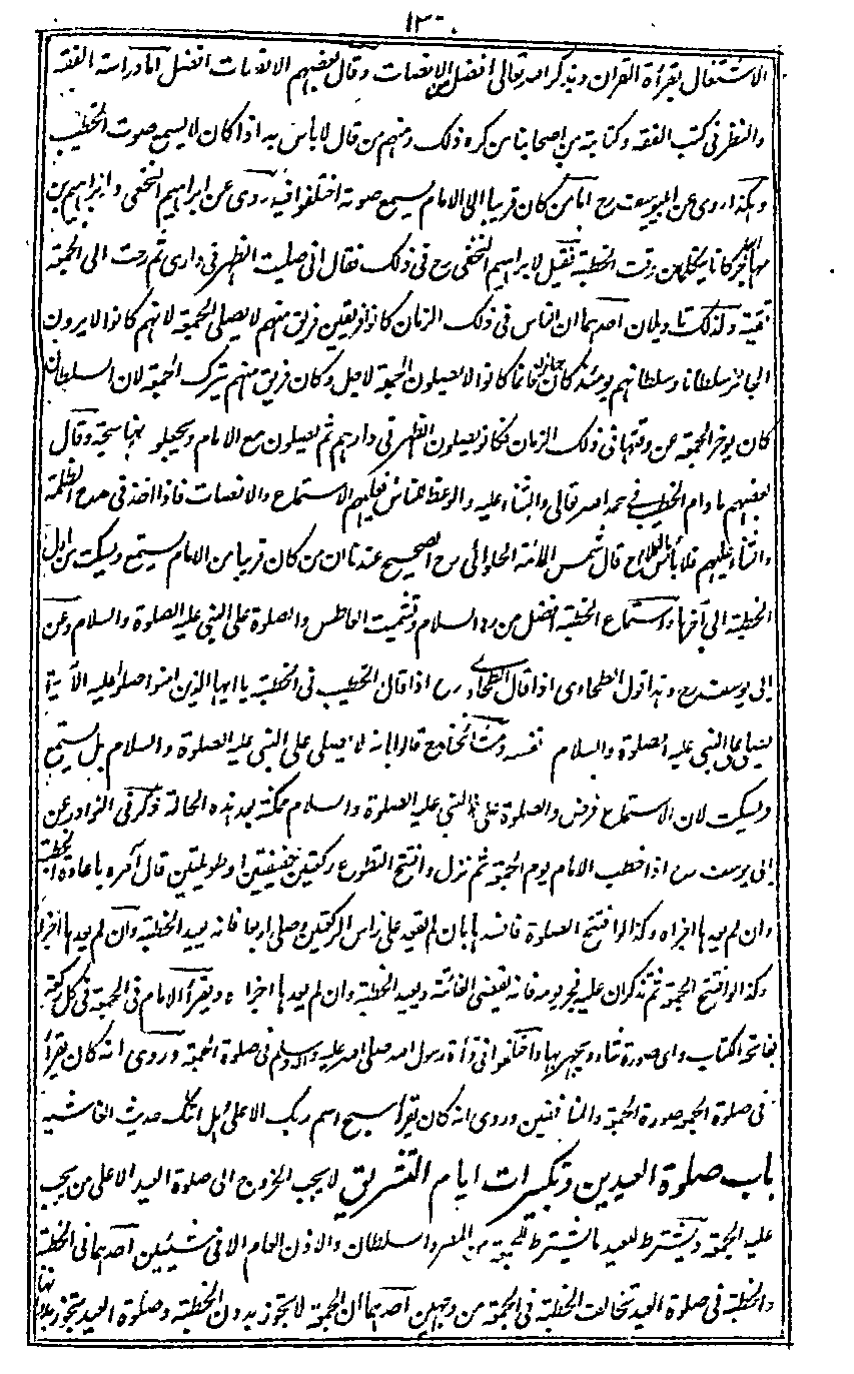 ١٣٠
الاشتغال بقرأة القران وبذكر الله تعالى أفضل من الانصات وقال بعضهم الانصات افضل اما دراسة الفقه
والنظر فى كتب الفقه وكتابته من اصحابنا من كره ذلك ومنهم من قال لا باس به اذا كان لا يسمع صوت الخطيب
وهكذا روى عن ابى يوسف رح اما من كان قريبا الى الامام يسمع صوته اختلفوا فيه روى عن ابراهيم النخعى وابراهيم بن
مهاجر كانا يتكلمان وقت الخطبة فقيل لابراهيم النخعى رح فى ذلك فقال انى صليت الظهر فى دارى ثم رحت الى الجمعة
تقية ولذلك تاويلان احدهما ان الناس فى ذلك الزمان كانوا فريقين فريق منهم لا يصلى الجمعة لانهم كانوا لا يرون
الجائر سلطانا وسلطانهم يومئذ كان جائرا فانما كانوا لا يصلون الجمعة لاجل وكان فريق منهم يترك الجمعة لان السلطان
كان يوخر الجمعة عن وقتها فى ذلك الزمان فكانوا يصلون الظهر فى دارهم ثم يصلون مع الامام ويجعلونها سبحة وقال
بعضهم ما دام الخطيب فى حمد الله تعالى والثناء عليه والوعظ للناس فعليهم الاستماع والانصات فاذا اخذ فى مدح الظلمة
والثناء عليهم فلا بأس بالكلام قال شمس الائمة الحلوائى رح الصحيح عندنا ان من كان قريبا من الامام يستمع ويسكت من اول
الخطبة الى آخرها واستماع الخطبة افضل من رد السلام وتشميت العاطس والصلوة على النبى عليه الصلوة والسلام وعن
ابى يوسف رح وهذا قول الطحاوى اذا قال الطحاوى رح اذا قال الخطيب فى الخطبة يا ايها الذين امنوا صلوا عليه الآية
يصلى على النبى عليه الصلوة والسلام فى نفسه ومشائخنا رح قالوا بانه لا يصلى على النبى عليه الصلوة والسلام بل يستمع
ويسكت لان الاستماع فرض والصلوة على النبى عليه الصلوة والسلام ممكنة بعد هذه الحالة ذكر فى النوادر عن
ابى يوسف رح اذا خطب الامام يوم الجمعة ثم نزل وافتتح التطوع ركعتين خفيفتين او طويلتين قال آمره باعادة الخطبة
وان لم يعدها اجزاه وكذا لو افتتح الصلوة فافسدها بان لم يقعد على راس الركعتين وصلى اربعا فانه يعيد الخطبة وان لم يعدها اجزاه
وكذا لو افتتح الجمعة ثم تذكر ان عليه فجر يومه فانه يقضى الفائتة ويعيد الخطبة وان لم يعدها اجزاه ويقرأ الامام فى الجمعة فى كل ركعة
بفاتحة الكتاب واى صورة شاء ويجهر بها واختلفوا فى قرأة رسول الله صلى الله عليه وآله وسلم فى صلوة الجمعة وروى انه كان يقرأ
فى صلوة الجمعة صورة الجمعة والمنافقين وروى انه كان يقرأ سبح اسم ربك الاعلى وهل اتك حديث الغاشية
باب صلوة العيدين وتكبيرات ايام التشريق لا يجب الخروج الى صلوة العيد الا على من يجب
عليه الجمعة ويشترط للعيد ما يشترط للجمعة من المصر والسلطان والاذن العام الا فى شيئين احدهما فى الخطبة
والخطبة فى صلوة العيد تخالف الخطبة فى الجمعة من وجهين احدهما ان الجمعة لا تجوز بدون الخطبة وصلوة العيد تجوز بدونها